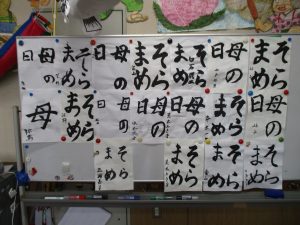 そら
まめ
母の
日
そら
まめ
そら
まめ
母の
日
そら
まめ
母の
日
母の
日
そら
まめ
母の
日
母の
日
母の
日
そら
まめ
母
そら
まめ
そら
まめ
そら
まめ
そら
まめ